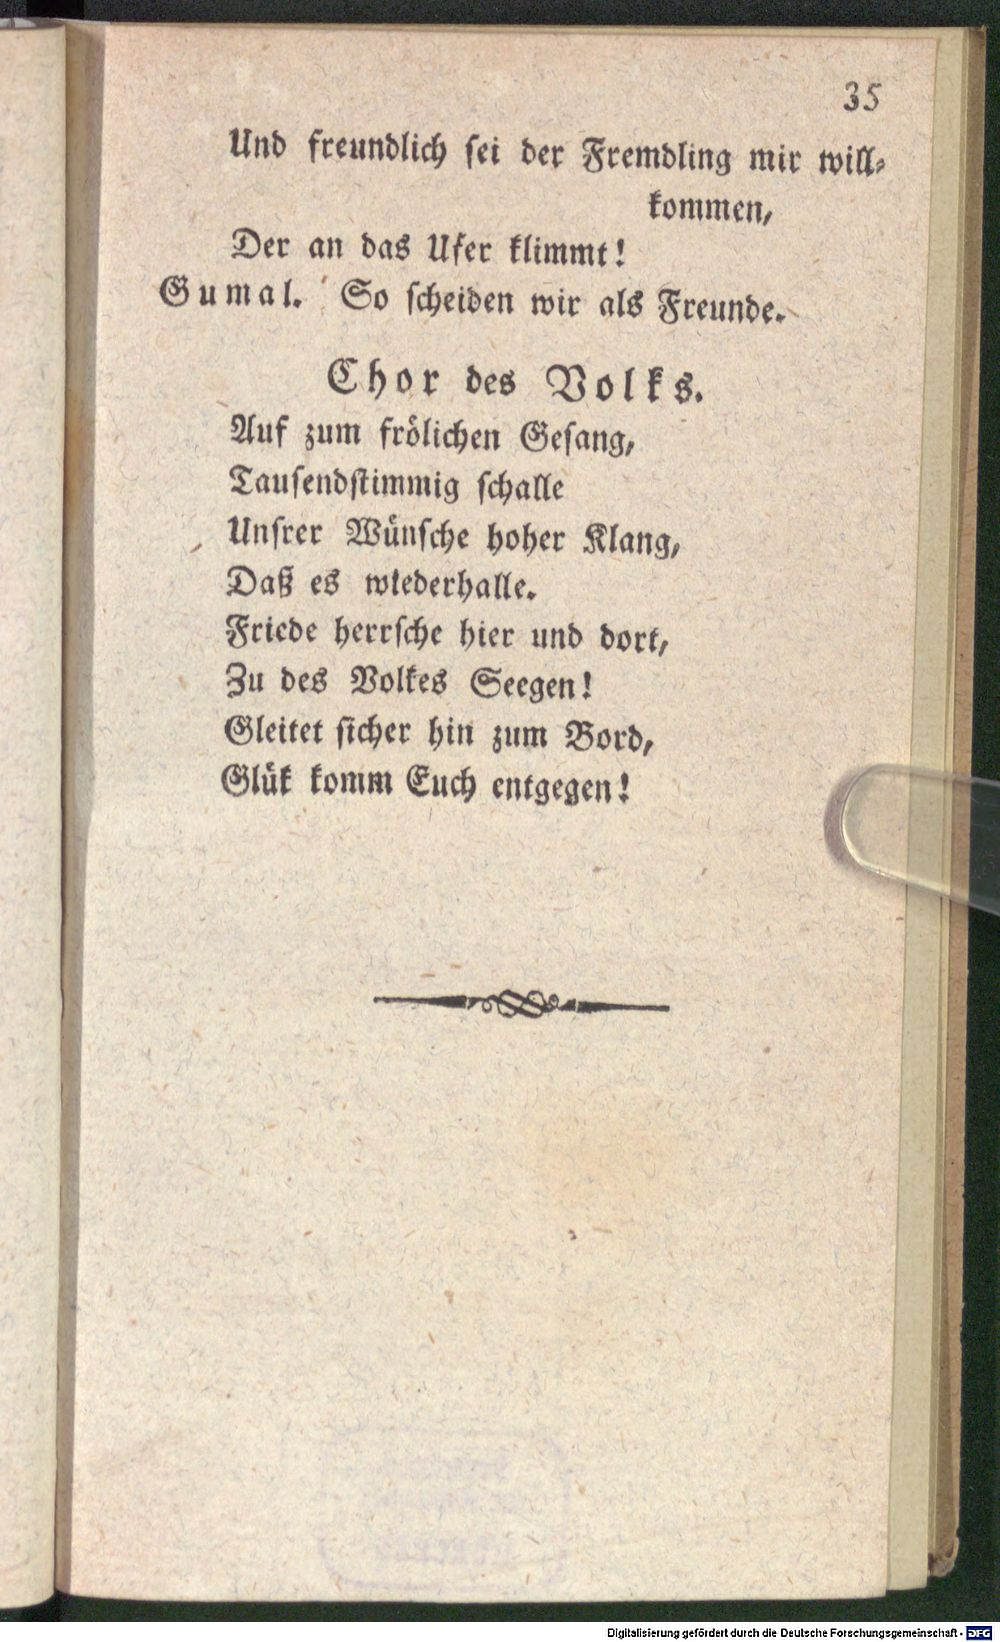 35
Und freundlich sei der Fremdling mir will-
kommen,
Der an das Ufer klimmt!
Gumal. So scheiden wir als Freunde.
Chor des Volks.
Auf zum frölichen Gesang,
Tausendstimmig schalle
Unsrer Wünsche hoher Klang,
Daß es wiederhalle.
Friede herrsche hier und dort,
Zu des Volkes Seegen!
Gleitet sicher hin zum Bord,
Glük komm Euch entgegen!
Digitalisierung gefördert durch die Deutsche Forschungsgemeinschaft - DFG